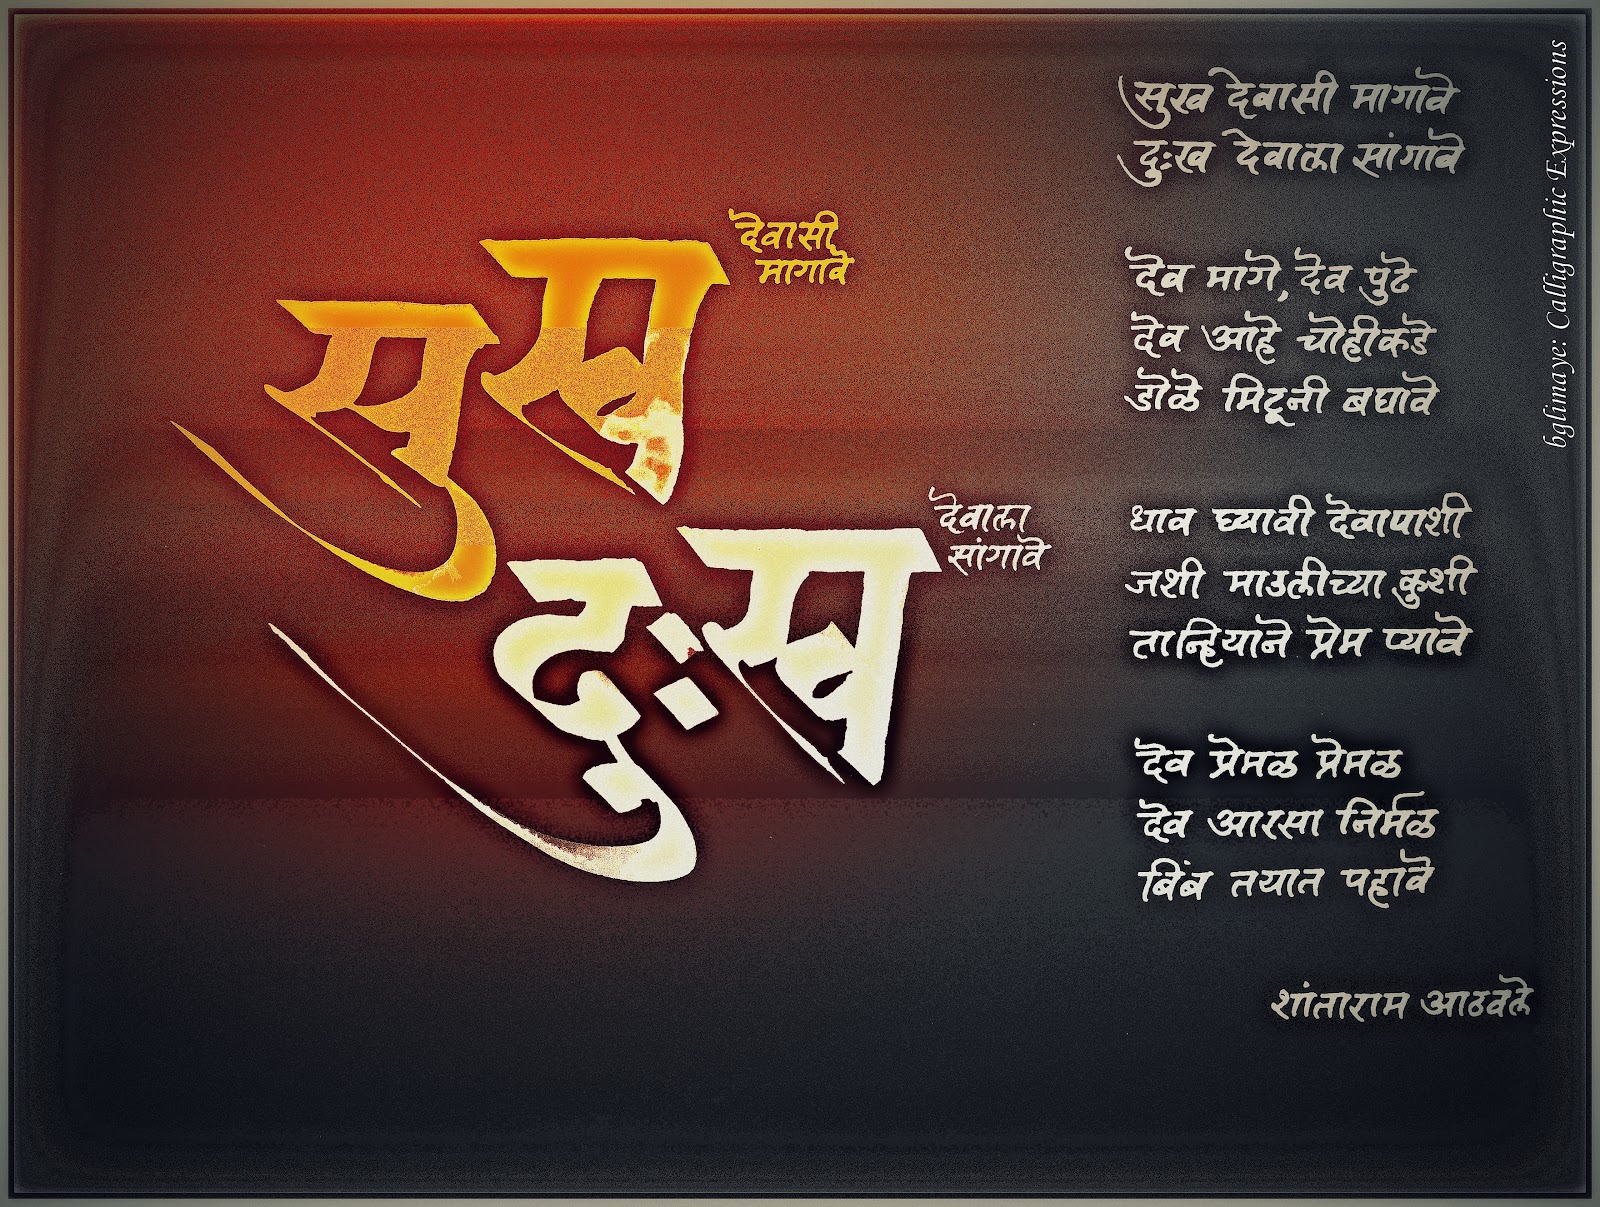 सुख
देवासी
मागावे
दुःख
देवाला
सांगावे
सुख देवासी मागावे
दुःख देवाला सांगावे
देव मागे, देव पुढे
देव आहे चोहीकडे
डोळे मिटूनी बघावे
धाव घ्यावी देवापाशी
जशी माउलीच्या कुशी
तान्हियाने प्रेम प्यावे
देव प्रेमळ प्रेमळ
देव आरसा निर्मळ
बिंब तयात पहावे
शांताराम आठवले
bglimaye: Calligraphic Expressions